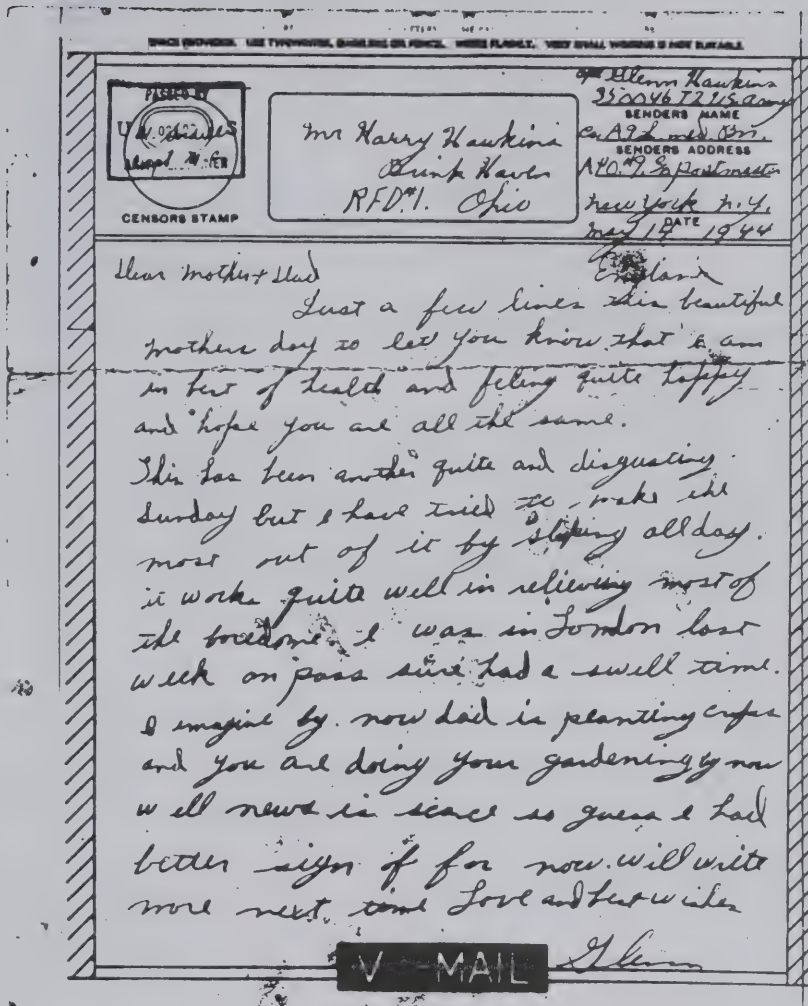 SPACE PROVIDED. USE TYPEWRITER, DARK INK OR PENCIL. WRITE PLAINLY. VERY SMALL WRITING IS NOT SUITABLE.
PASSED BY
CENSORS STAMP
Mr Harry Hawkins
Brink Haven
RFD#1. Ohio
Glenn Hawkins
35004672 U.S. Army
SENDERS NAME
Co A 9th med Bn.
SENDERS ADDRESS
APO.#9. % Postmaster
New York N.Y.
DATE
May 14 1944
England
Dear Mother & Dad
Just a few lines this beautiful
mothers day to let you know that I am
in best of health and feling quite happy
and hope you are all the same.
This has been another quite and disgusting
Sunday but I have tried to make the
most out of it by sleping all day.
it works quite well in relieving most of
the boredome. I was in London last
week on pass sure had a swell time.
I imagine by now dad is planting crops
and you are doing your gardening by now
well news is scarce so guess I had
better sign of for now. will write
more next time Love and best wishes
Glenn
V-MAIL